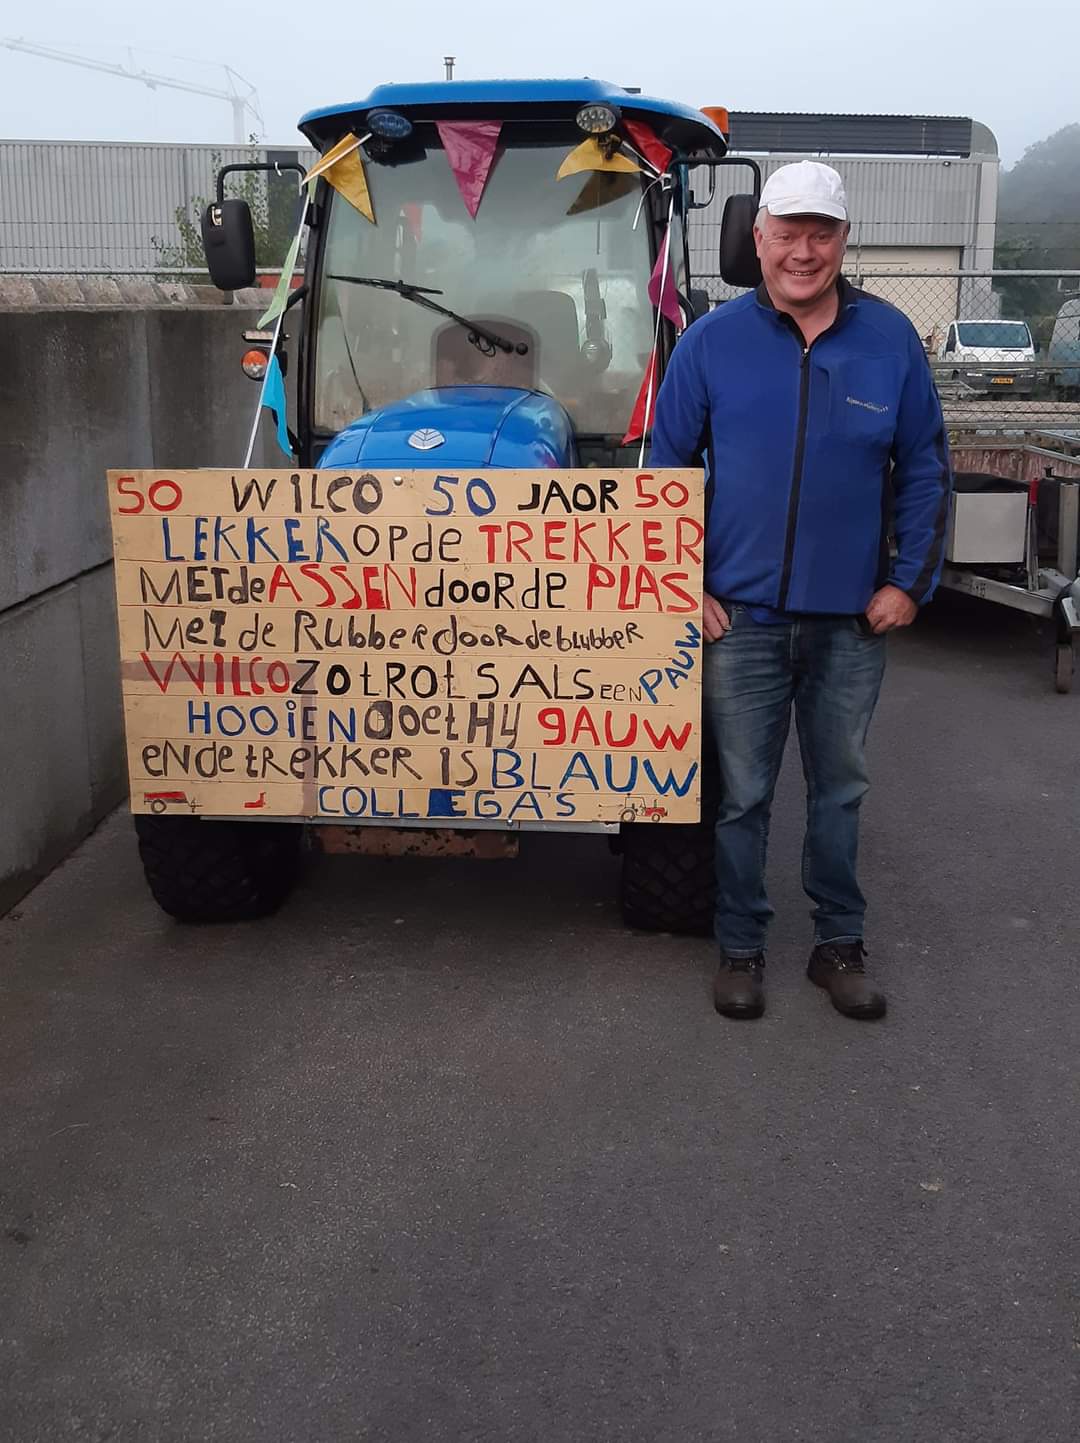 50 WILCO 50 JAOR 50
LEKKER OP de TREKKER
MET de ASSEN dooR de PLAS
MeT de RubbeR dooR de blubbeR
WILCO Zo tRot S ALS een PAUW
HOOiEN doet Hij gAUW
en de tRekkeR is BLAUW
COLLEGA'S